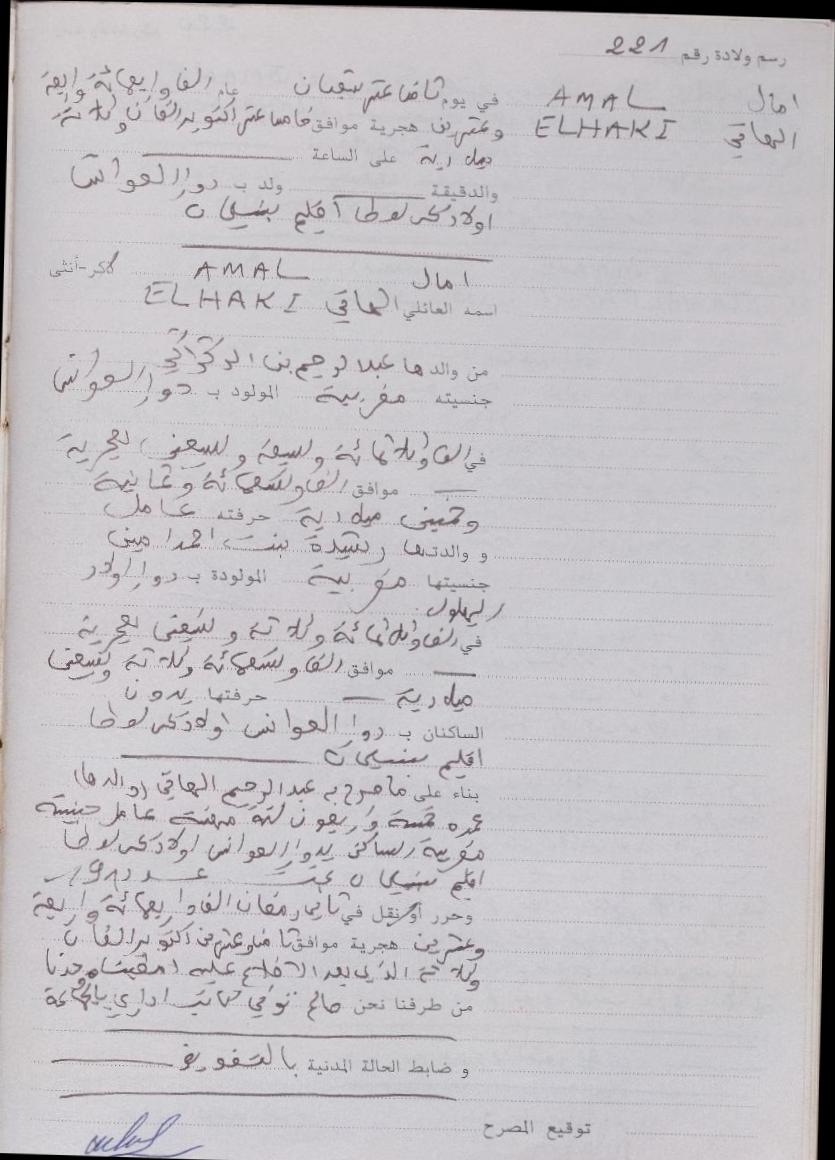 رسم ولادة رقم 221
امال AMAL
الهاقي ELHAKI
في يوم ثامن عشر شعبان عام الف واربعمائة واربعة
وعشرين هجرية موافق خامس عشر اكتوبر الفان وثلاثة
ميلادية على الساعة
والدقيقة ولد ب دوار العوانس
اولاد يحيى لوطا اقليم بنسليمان
امال AMAL ذكر-أنثى
اسمه العائلي الهاقي ELHAKI
من والدها عبد الرحيم بن
جنسيته مغربية المولود ب دوار العوانس
في الف وثلاثمائة وسبعة وسبعين هجرية
موافق الف وتسعمائة وثمانية
وخمسين ميلادية حرفته عامل
و والدتها رشيدة بنت احمد امين
جنسيتها مغربية المولودة ب دوار اولاد
البهلول
في الف وثلاثمائة وثلاثة وتسعين هجرية
موافق الف وتسعمائة وثلاثة وسبعين
ميلادية حرفتها بدون
الساكنان ب دوار العوانس اولاد يحيى لوطا
اقليم بنسليمان
بناء على ما صرح به عبد الرحيم الهاقي (والدها)
عمره خمسة واربعون سنة مهنته عامل جنسيته
مغربية الساكن بدوار العوانس اولاد يحيى لوطا
اقليم بنسليمان تحت عدد
وحرر أو نقل في ثاني رمضان الف واربعمائة واربعة
وعشرين هجرية موافق ثامن وعشرين اكتوبر الفان
وثلاثة الذي بعد الاطلاع عليه امضيناه وحدنا
من طرفنا نحن صالح توفيق كاتب اداري بالجماعة
و ضابط الحالة المدنية بالتفويض
توقيع المصرح